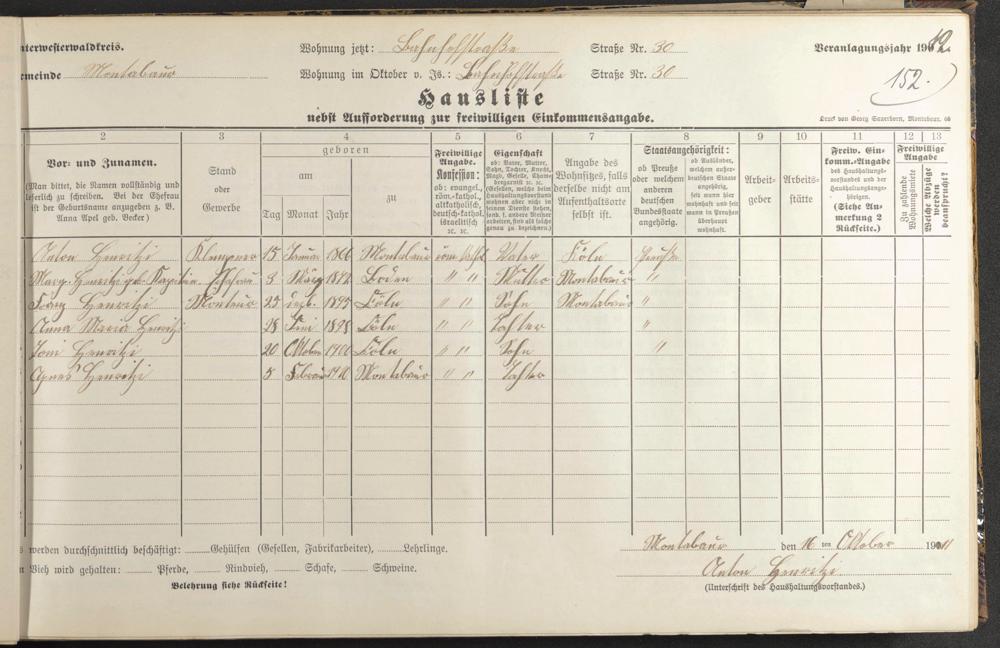 nterwesterwaldkreis. Wohnung jetzt: Bahnhofstraße Straße Nr. 30 Veranlagungsjahr 1912.
emeinde Montabaur Wohnung im Oktober v. Js.: Bahnhofstraße Straße Nr. 30 152.
Hausliste
nebst Aufforderung zur freiwilligen Einkommensangabe.
Druck von Georg Sauerborn, Montabaur. 66
2 3 4 5 6 7 8 9 10 11 12 13
Vor- und Zunamen.
(Man bittet, die Namen vollständig und
leserlich zu schreiben. Bei der Ehefrau
ist der Geburtsname anzugeben z. B.
Anna Apel geb. Becker)
Stand
oder
Gewerbe
geboren
am
zu
Tag Monat Jahr
Freiwillige
Angabe.
Konfession:
ob: evangel.,
röm.-kathol.,
altkatholisch,
deutsch-kathol.
israelitisch
ꝛc. ꝛc.
Eigenschaft
ob: Vater, Mutter,
Sohn, Tochter, Knecht,
Magd, Geselle, Chambregarnist ꝛc. ꝛc.
Angabe des
Wohnsitzes, falls
derselbe nicht am
Aufenthaltsorte
selbst ist.
Staatsangehörigkeit:
ob Preuße
oder welchem
anderen
deutschen
Bundesstaate
angehörig.
ob Ausländer,
welchem außerdeutschen Staate
angehörig,
seit wann hier
wohnhaft und seit
wann in Preußen
überhaupt
wohnhaft.
Arbeitgeber
Arbeitsstätte
Freiw. Einkomm.-Angabe
des Haushaltungsvorstandes und der
Haushaltungsangehörigen.
(Siehe Anmerkung 2
Rückseite.)
Freiwillige
Angabe
Zu zahlende
Wohnungsmiete
Welche Abzüge
werden
beansprucht?
Anton Henritzi Klempner 15 Januar 1866 Montabaur röm. kathol. Vater Köln Preuße
Marg. Henritzi geb. 3 März 1872 Boden " " Mutter Montabaur "
Franz Henritzi Monteur 25 1895 Cöln " " Sohn Montabaur "
Anna Maria Henritzi 28 Juni 1898 Cöln " " Tochter "
Toni Henritzi 20 Oktober 1900 Cöln " " Sohn "
Agnes Henritzi 5 Februar 1910 Montabaur " " Tochter
werden durchschnittlich beschäftigt: Gehülfen (Gesellen, Fabrikarbeiter), Lehrlinge.
Vieh wird gehalten: Pferde, Rindvieh, Schafe, Schweine.
Belehrung siehe Rückseite!
Montabaur den 16 ten Oktober 1911
Anton Henritzi
(Unterschrift des Haushaltungsvorstandes.)